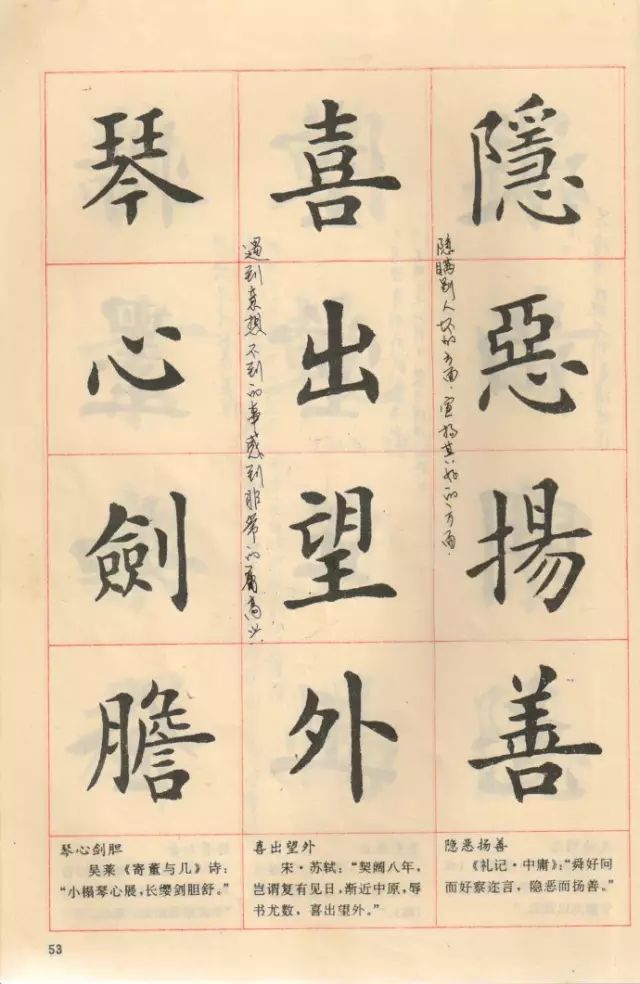 隱惡揚善
隐瞒别人坏的方面，宣扬其好的方面．
喜出望外
遇到意想不到的事感到非常的高兴
琴心劍膽
隐恶扬善
《礼记·中庸》：“舜好问
而好察迩言，隐恶而扬善。”
喜出望外
宋·苏轼：“契阔八年，
岂谓复有见日，渐近中原，辱
书尤数，喜出望外。”
琴心剑胆
吴莱《寄董与几》诗：
“小榻琴心展，长缨剑胆舒。”
53